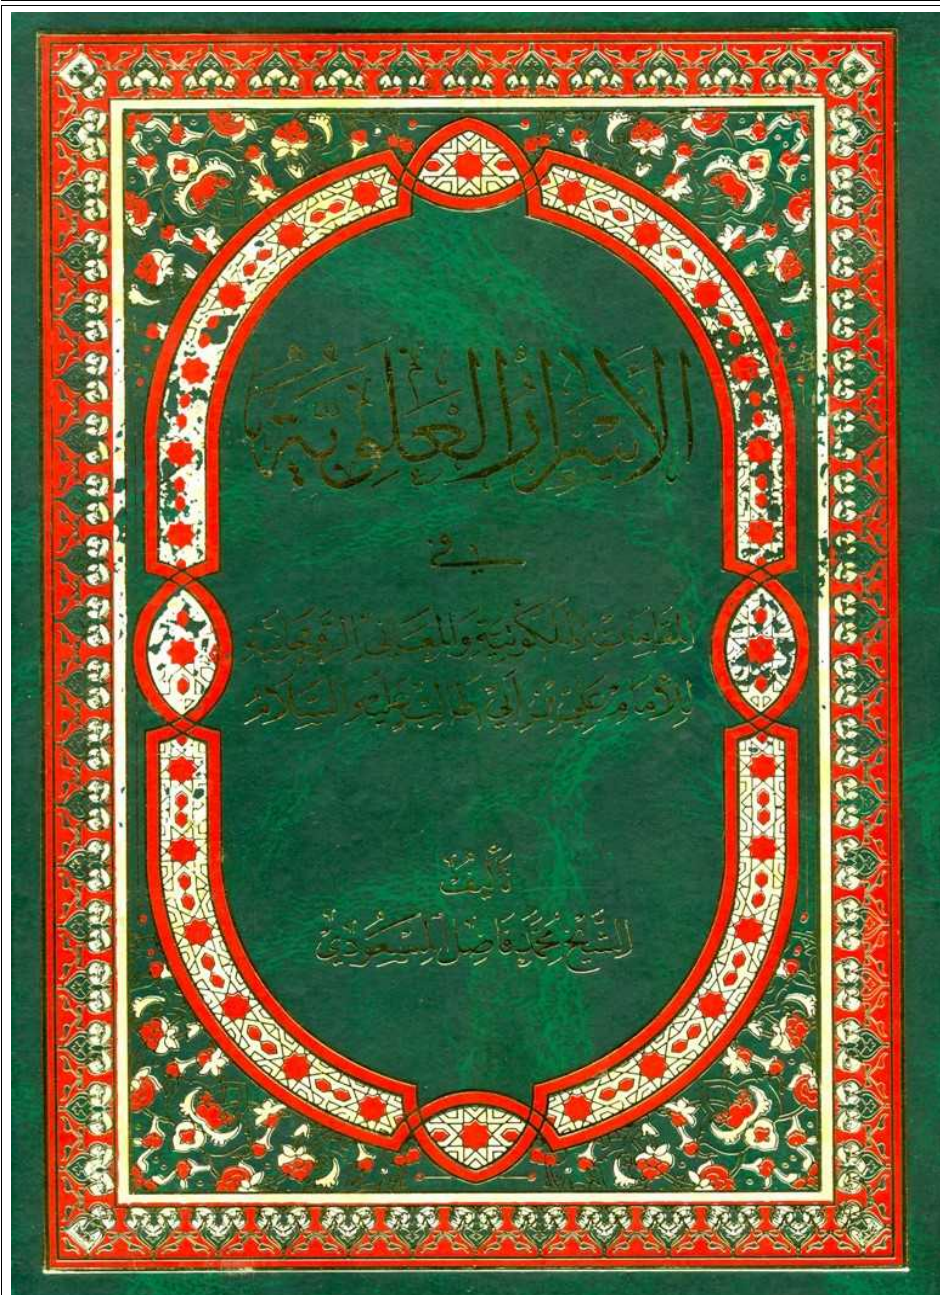 الأسرار العلوية
في
المقامات الملكوتية والمعاني الروحانية
للإمام علي بن أبي طالب عليه السلام
تأليف
الشيخ محمد فاضل المسعودي